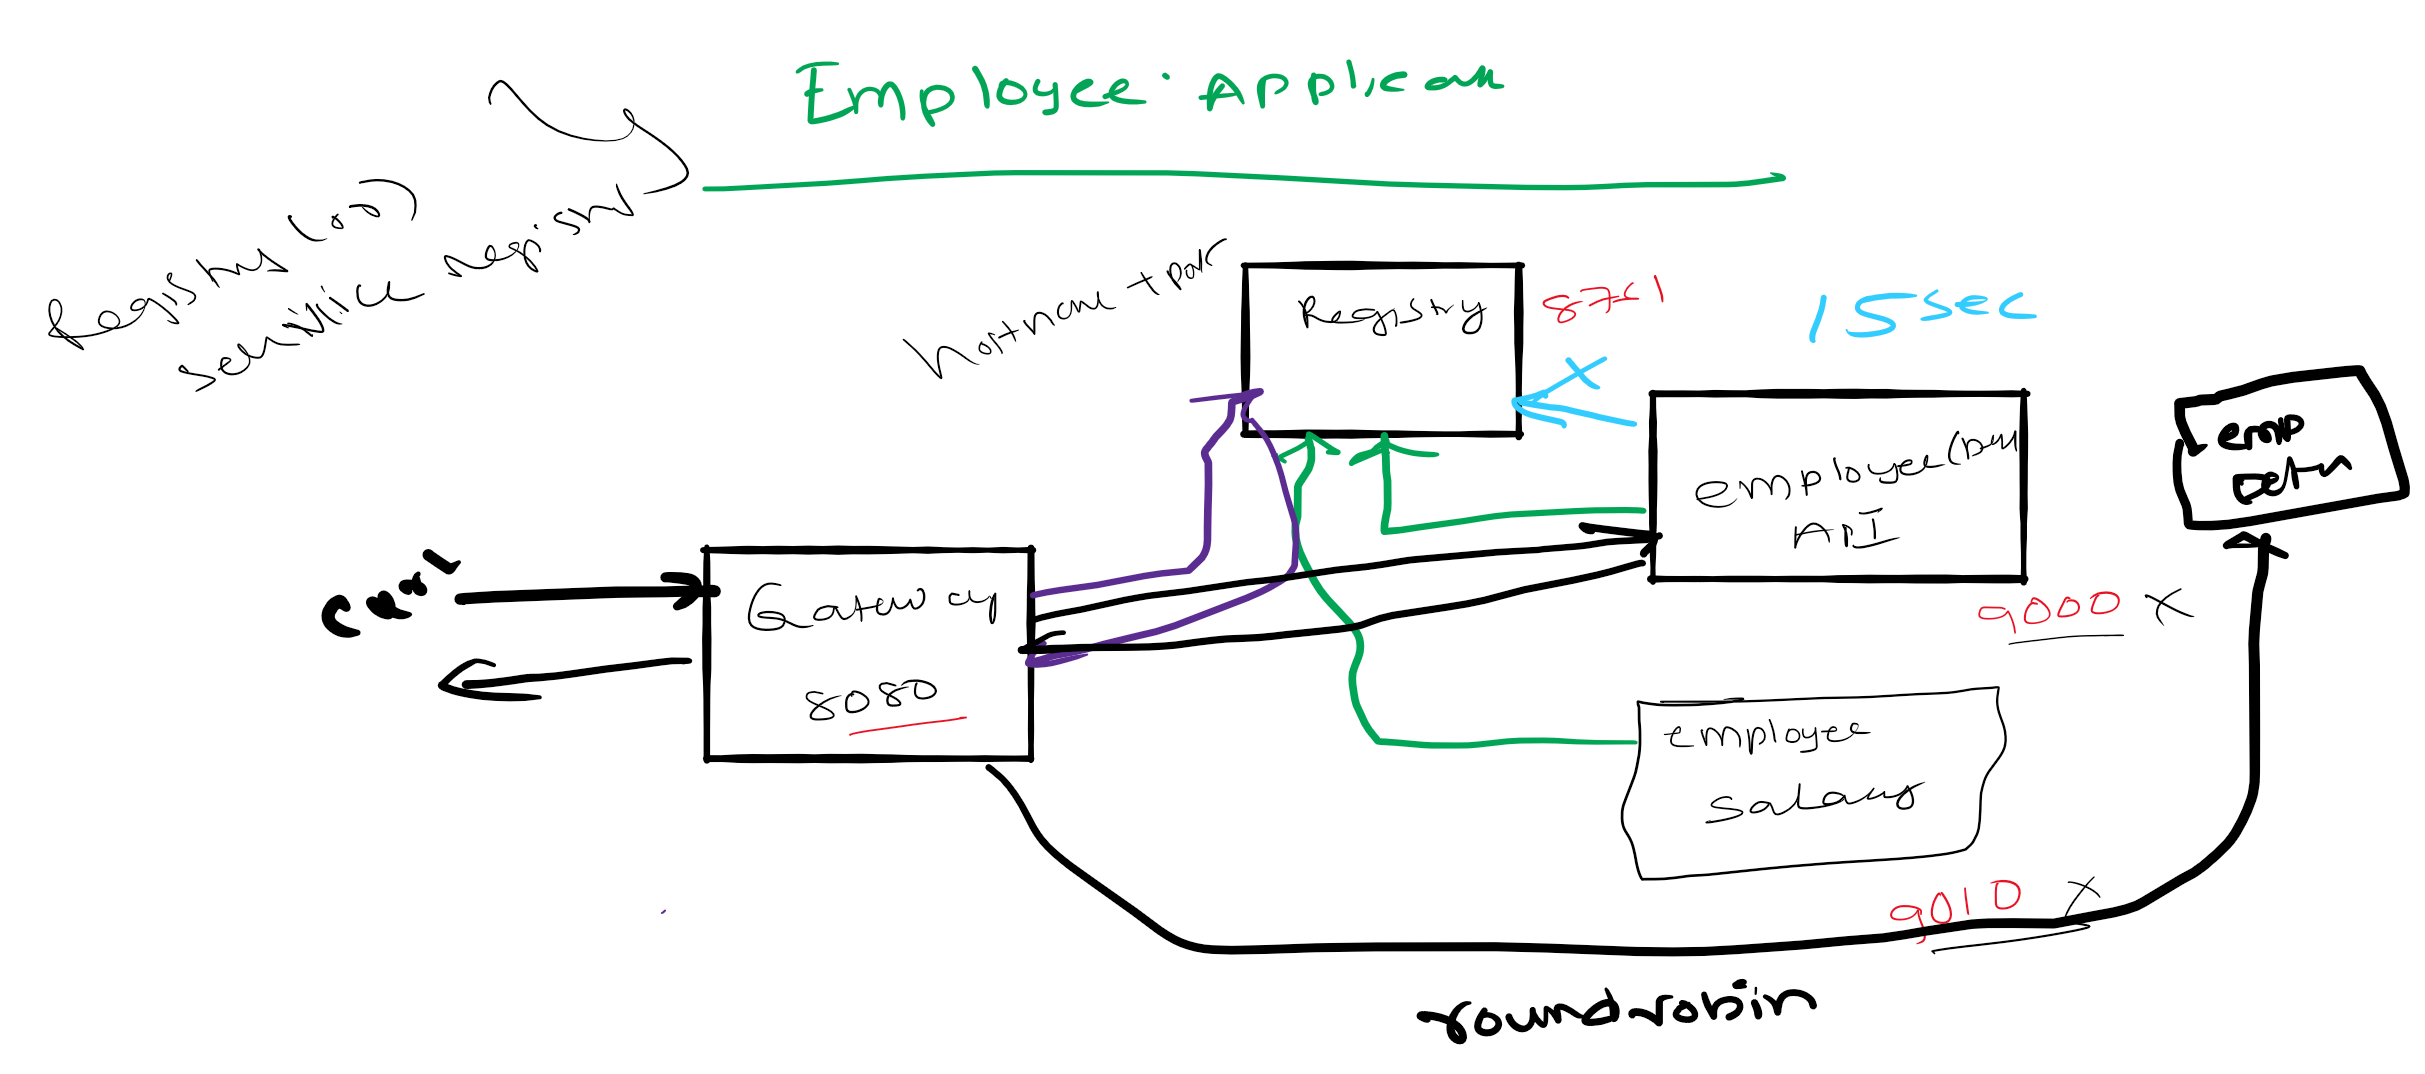 Employee Applican
Registry (or)
service registry
hostname + port
Registry
8761
15 sec
employee(
API
emp
9000 X
curl
Gateway
8080
employee
salary
9010 X
roundrobin